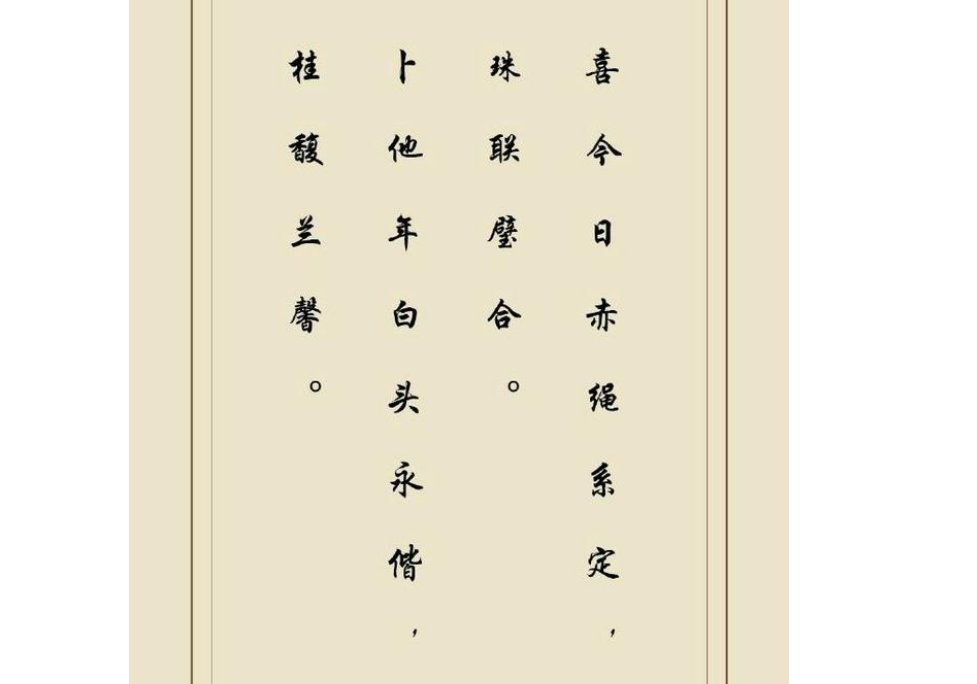 喜今日赤绳系定，
珠联璧合。
卜他年白头永偕，
桂馥兰馨。